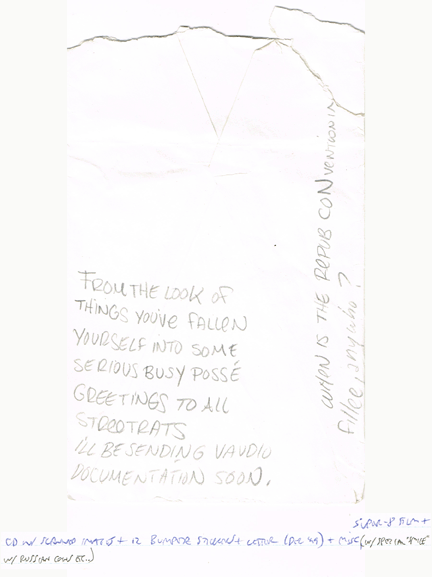 FROM THE LOOK OF
THINGS YOU'VE FALLEN
YOURSELF INTO SOME
SERIOUS BUSY POSSÉ
GREETINGS TO ALL
STREETRATS
I'LL BE SENDING VAUDIO
DOCUMENTATION SOON.
WHEN IS THE REPUB CONVENTION IN
fillee, anywho?
SUPER-8 FILM +
CD W/ SCANNED IMAGES + 12 BUMPER STICKERS + LETTER (DEC 99) + MISC (W/ SPECIAL
W/ RUSSIAN COINS ETC.)